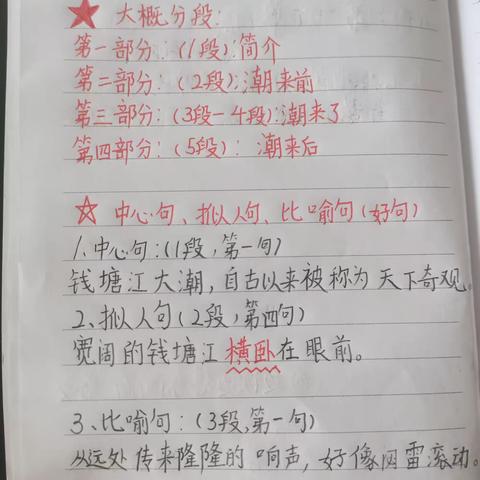 ★大概分段:
第一部分:(1段):简介
第二部分:(2段):潮来前
第三部分:(3段-4段):潮来了
第四部分:(5段): 潮来后
☆中心句、拟人句、比喻句(好句)
1、中心句:(1段,第一句)
钱塘江大潮,自古以来被称为天下奇观。
2、拟人句(2段,第四句)
宽阔的钱塘江横卧在眼前。
3、比喻句:(3段,第一句)
从远处传来隆隆的响声,好像闷雷滚动。